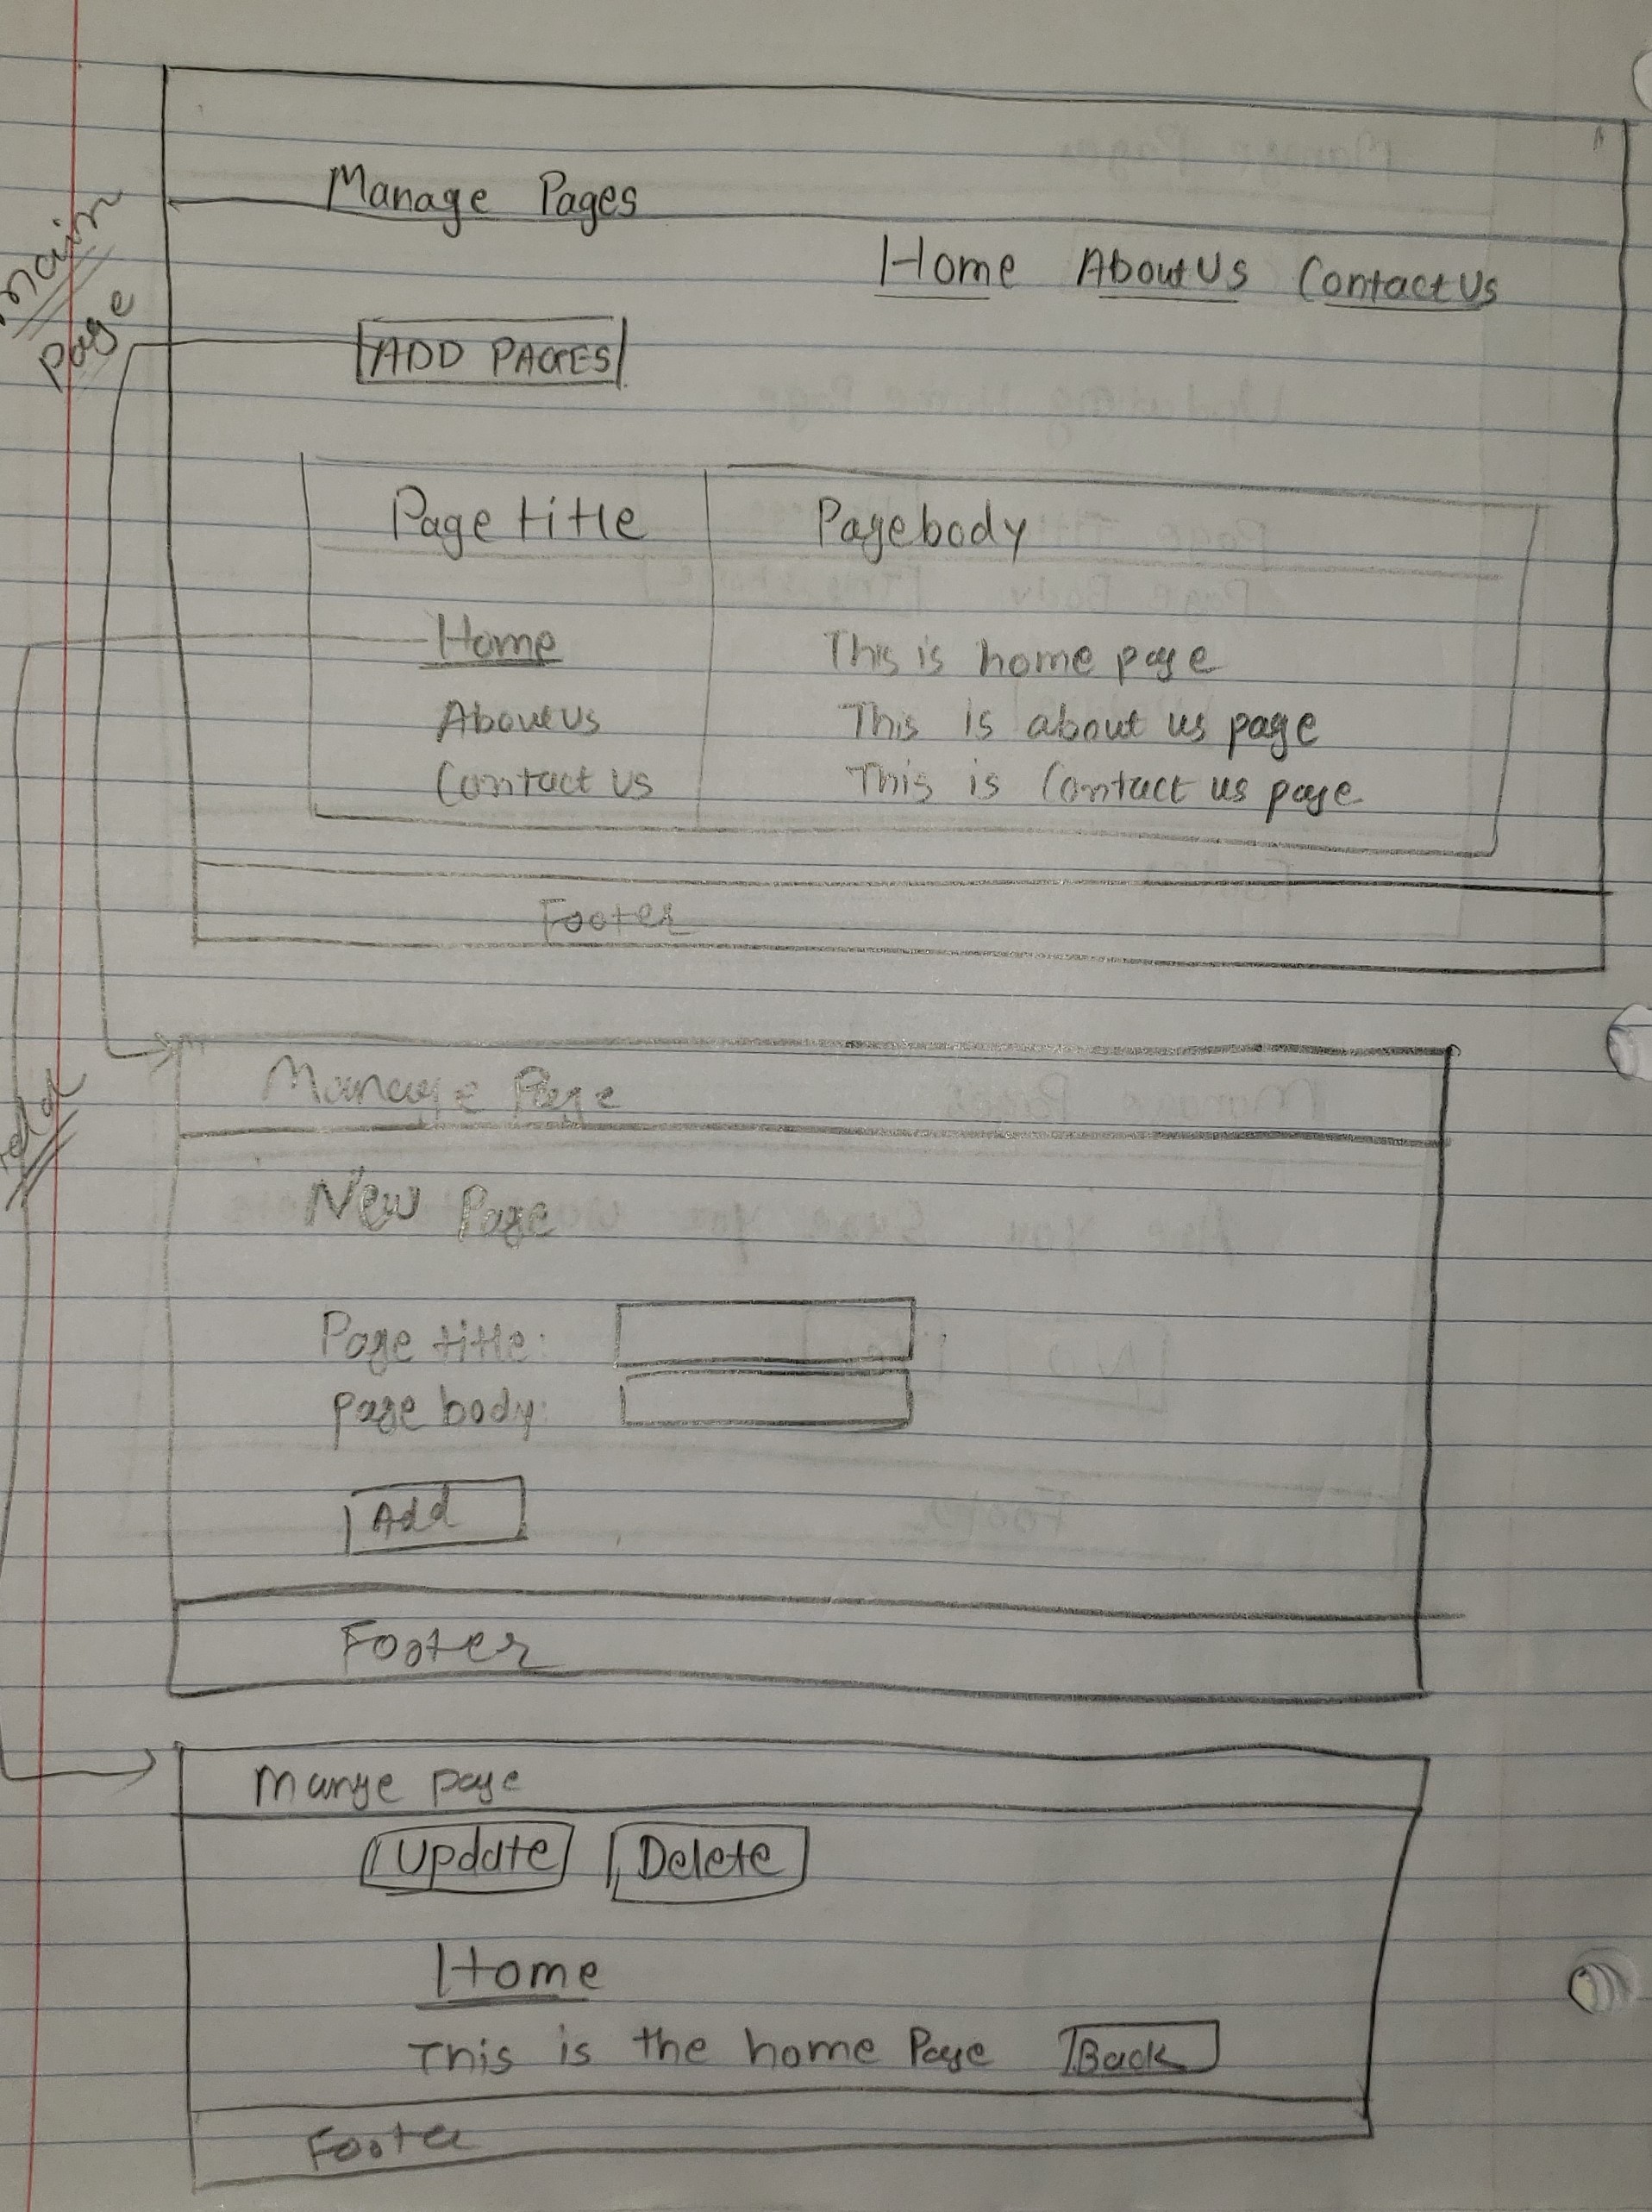 Main
Page
Manage Pages
Home About Us Contact Us
ADD PAGES
Page title Pagebody
Home This is home page
About us This is about us page
Contact us This is Contact us page
Footer
Manage Page
New Page
Page title:
Page body:
Add
Footer
Mange page
Update Delete
Home
This is the home Page Back
Footer